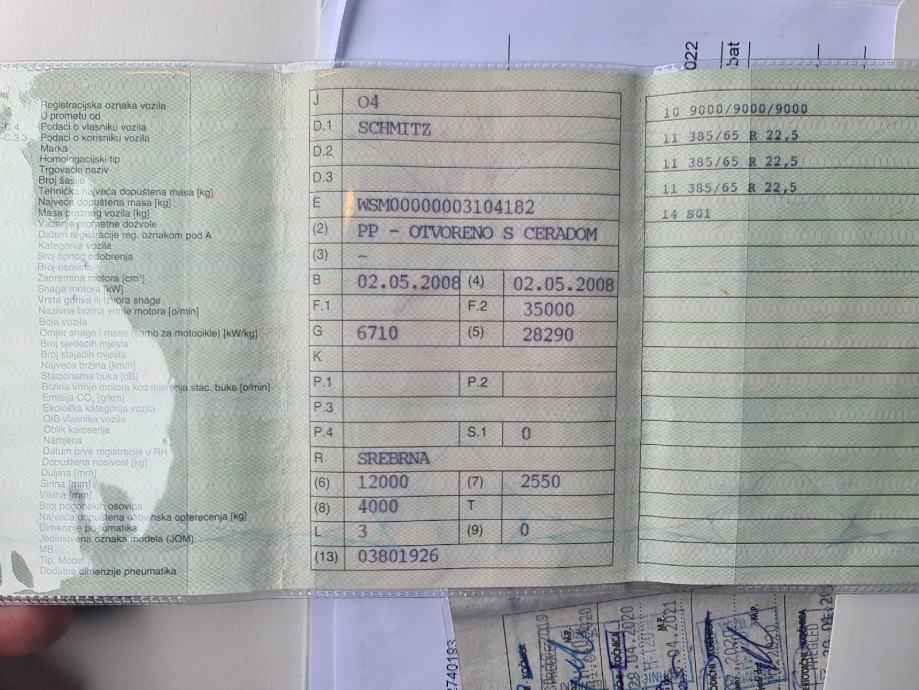 Registracijska oznaka vozila
U prometu od
Podaci o vlasniku vozila
Podaci o korisniku vozila
Marka
Homologacijski tip
Trgovački naziv
Broj šasije
Tehnička najveća dopuštena masa [kg]
Najveća dopuštena masa [kg]
Masa praznog vozila [kg]
Važenje prometne dozvole
Datum registracije reg. oznakom pod A
Kategorija vozila
Broj tipnog odobrenja
Broj osovina
Zapremina motora [cm³]
Snaga motora [kW]
Vrsta goriva ili izvora snage
Nazivna brzina vrtnje motora [o/min]
Boja vozila
Omjer snage i mase (samo za motocikle) [kW/kg]
Broj sjedećih mjesta
Broj stajaćih mjesta
Najveća brzina [km/h]
Stacionarna buka [dB]
Brzina vrtnje motora kod mjerenja stac. buke [o/min]
Emisija CO₂ [g/km]
Ekološka kategorija vozila
OIB vlasnika vozila
Oblik karoserije
Namjena
Datum prve registracije u RH
Dopuštena nosivost [kg]
Duljina [mm]
Širina [mm]
Visina [mm]
Broj pogonskih osovina
Najveća dopuštena osovinska opterećenja [kg]
Dimenzije pneumatika
Jedinstvena oznaka modela (JOM)
MB
Tip, Model
Dodatne dimenzije pneumatika
J O4
D.1 SCHMITZ
D.2
D.3
E WSM00000003104182
(2) PP - OTVORENO S CERADOM
(3) -
B 02.05.2008 (4) 02.05.2008
F.1 F.2 35000
G 6710 (5) 28290
K
P.1 P.2
P.3
P.4 S.1 0
R SREBRNA
(6) 12000 (7) 2550
(8) 4000 T
L 3 (9) 0
(13) 03801926
10 9000/9000/9000
11 385/65 R 22,5
11 385/65 R 22,5
11 385/65 R 22,5
14 S01
022
bat
2740193